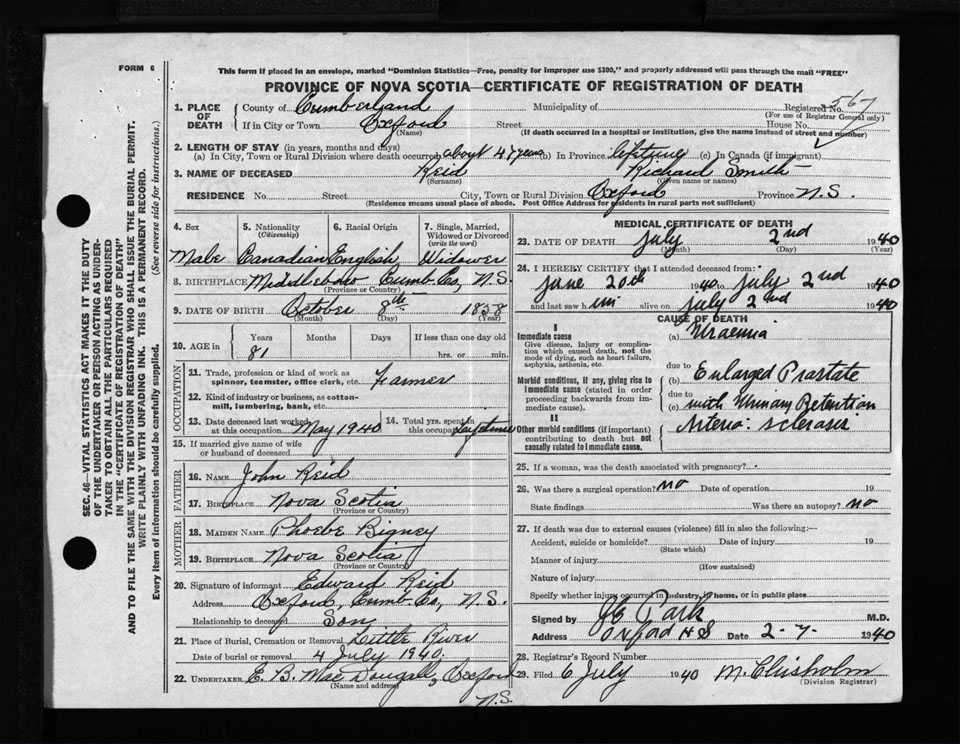 FORM 6
This form if placed in an envelope, marked "Dominion Statistics—Free, penalty for improper use $300," and properly addressed will pass through the mail "FREE"
PROVINCE OF NOVA SCOTIA—CERTIFICATE OF REGISTRATION OF DEATH
1. PLACE OF DEATH County of Cumberland Municipality of Registered No. 567
(For use of Registrar General only)
If in City or Town Oxford Street House No.
(Name) (If death occurred in a hospital or institution, give the name instead of street and number)
2. LENGTH OF STAY (in years, months and days)
(a) In City, Town or Rural Division where death occurred about 47 years (b) In Province lifetime (c) In Canada (if immigrant)
3. NAME OF DECEASED Reid Richard Smith
(Surname) (Given name or names)
RESIDENCE No. Street City, Town or Rural Division Oxford Province N.S.
(Residence means usual place of abode. Post Office Address for residents in rural parts not sufficient)
4. Sex 5. Nationality (Citizenship) 6. Racial Origin 7. Single, Married, Widowed or Divorced (write the word)
Male Canadian English Widower
8. BIRTHPLACE Middleboro Cumb. Co, N.S.
(Province or Country)
9. DATE OF BIRTH October 8th 1858
(Month) (Day) (Year)
10. AGE in Years Months Days If less than one day old
81 hrs. or min.
OCCUPATION
11. Trade, profession or kind of work as spinner, teamster, office clerk, etc. Farmer
12. Kind of industry or business, as cotton-mill, lumbering, bank, etc.
13. Date deceased last worked at this occupation May 1940 14. Total yrs. spent in this occupation
15. If married give name of wife or husband of deceased
FATHER
16. NAME John Reid
17. BIRTHPLACE Nova Scotia
(Province or Country)
MOTHER
18. MAIDEN NAME Phoebe Bigney
19. BIRTHPLACE Nova Scotia
(Province or Country)
20. Signature of informant Edward Reid
Address Oxford, Cumb. Co, N.S.
Relationship to deceased Son
21. Place of Burial, Cremation or Removal Little River
Date of burial or removal 4 July 1940.
22. UNDERTAKER E. B. MacDougall, Oxford
(Name and address) N.S.
MEDICAL CERTIFICATE OF DEATH
23. DATE OF DEATH July 2nd 1940
(Month) (Day)
24. I HEREBY CERTIFY that I attended deceased from:
June 20th 1940 to July 2nd 1940
and last saw him alive on July 2nd 1940
CAUSE OF DEATH
I
Immediate cause (a) Uraemia
Give disease, injury or complication which caused death, not the mode of dying, such as heart failure, asphyxia, asthenia, etc.
due to
Morbid conditions, if any, giving rise to immediate cause (stated in order proceeding backwards from immediate cause). (b) Enlarged Prostate
due to
(c) with Urinary Retention
II
Other morbid conditions (if important) contributing to death but not causally related to immediate cause. Arterio-sclerosis
25. If a woman, was the death associated with pregnancy?
26. Was there a surgical operation? no Date of operation 19
State findings Was there an autopsy? no
27. If death was due to external causes (violence) fill in also the following:—
Accident, suicide or homicide? Date of injury 19
(State which)
Manner of injury
(How sustained)
Nature of injury
Specify whether injury occurred in industry, home, or in public place
Signed by Park M.D.
Address Oxford N S Date 2-7- 1940
28. Registrar's Record Number
29. Filed 6 July 1940 M. Chisholm
(Division Registrar)
SEC. 46—VITAL STATISTICS ACT MAKES IT THE DUTY
OF THE UNDERTAKER OR PERSON ACTING AS UNDER-
TAKER TO OBTAIN ALL THE PARTICULARS REQUIRED
IN THE "CERTIFICATE OF REGISTRATION OF DEATH"
AND TO FILE THE SAME WITH THE DIVISION REGISTRAR WHO SHALL ISSUE THE BURIAL PERMIT.
WRITE PLAINLY WITH UNFADING INK. THIS IS A PERMANENT RECORD.
Every item of information should be carefully supplied. (See reverse side for instructions.)